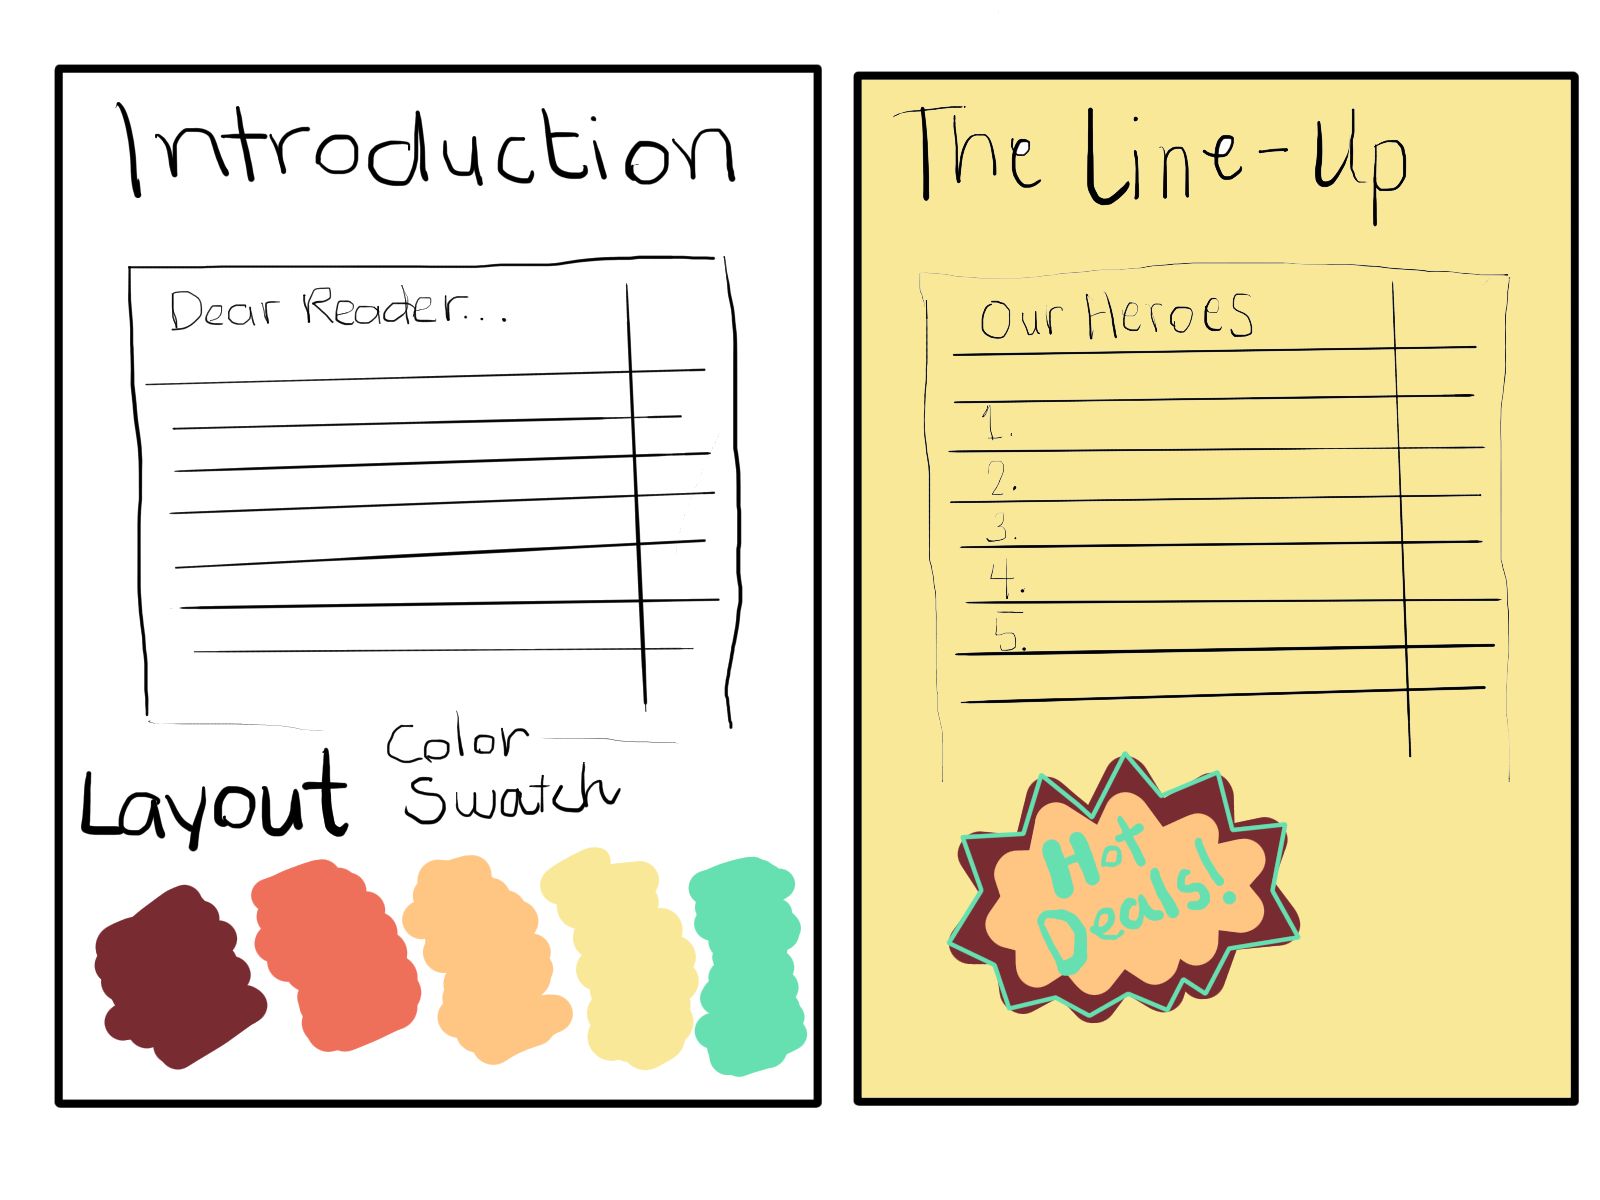 Introduction
Dear Reader...
Color
Swatch
Layout
The Line-Up
Our Heroes
1.
2.
3.
4.
5.
Hot
Deals!